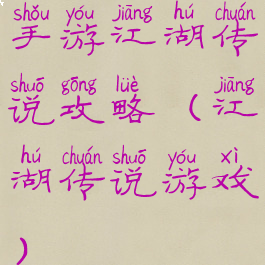 shǒu yóu jiāng hú chuán
手游江湖传
shuō gōng lüè jiāng
说攻略(江
hú chuán shuō yóu xì
湖传说游戏
)